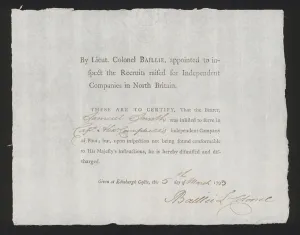 By Lieut. Colonel BAILLIE, appointed to in-
spect the Recruits raised for Independent
Companies in North Britain.
THESE ARE TO CERTIFY, That the Bearer,
Samuel Smith was inlisted to serve in
Independent Company
of Foot; but, upon inspection not being found conformable
to His Majesty's instructions, he is hereby dismissed and dis-
charged.
Given at Edinburgh Castle, the 5th of March
Baillie Lt Colonel